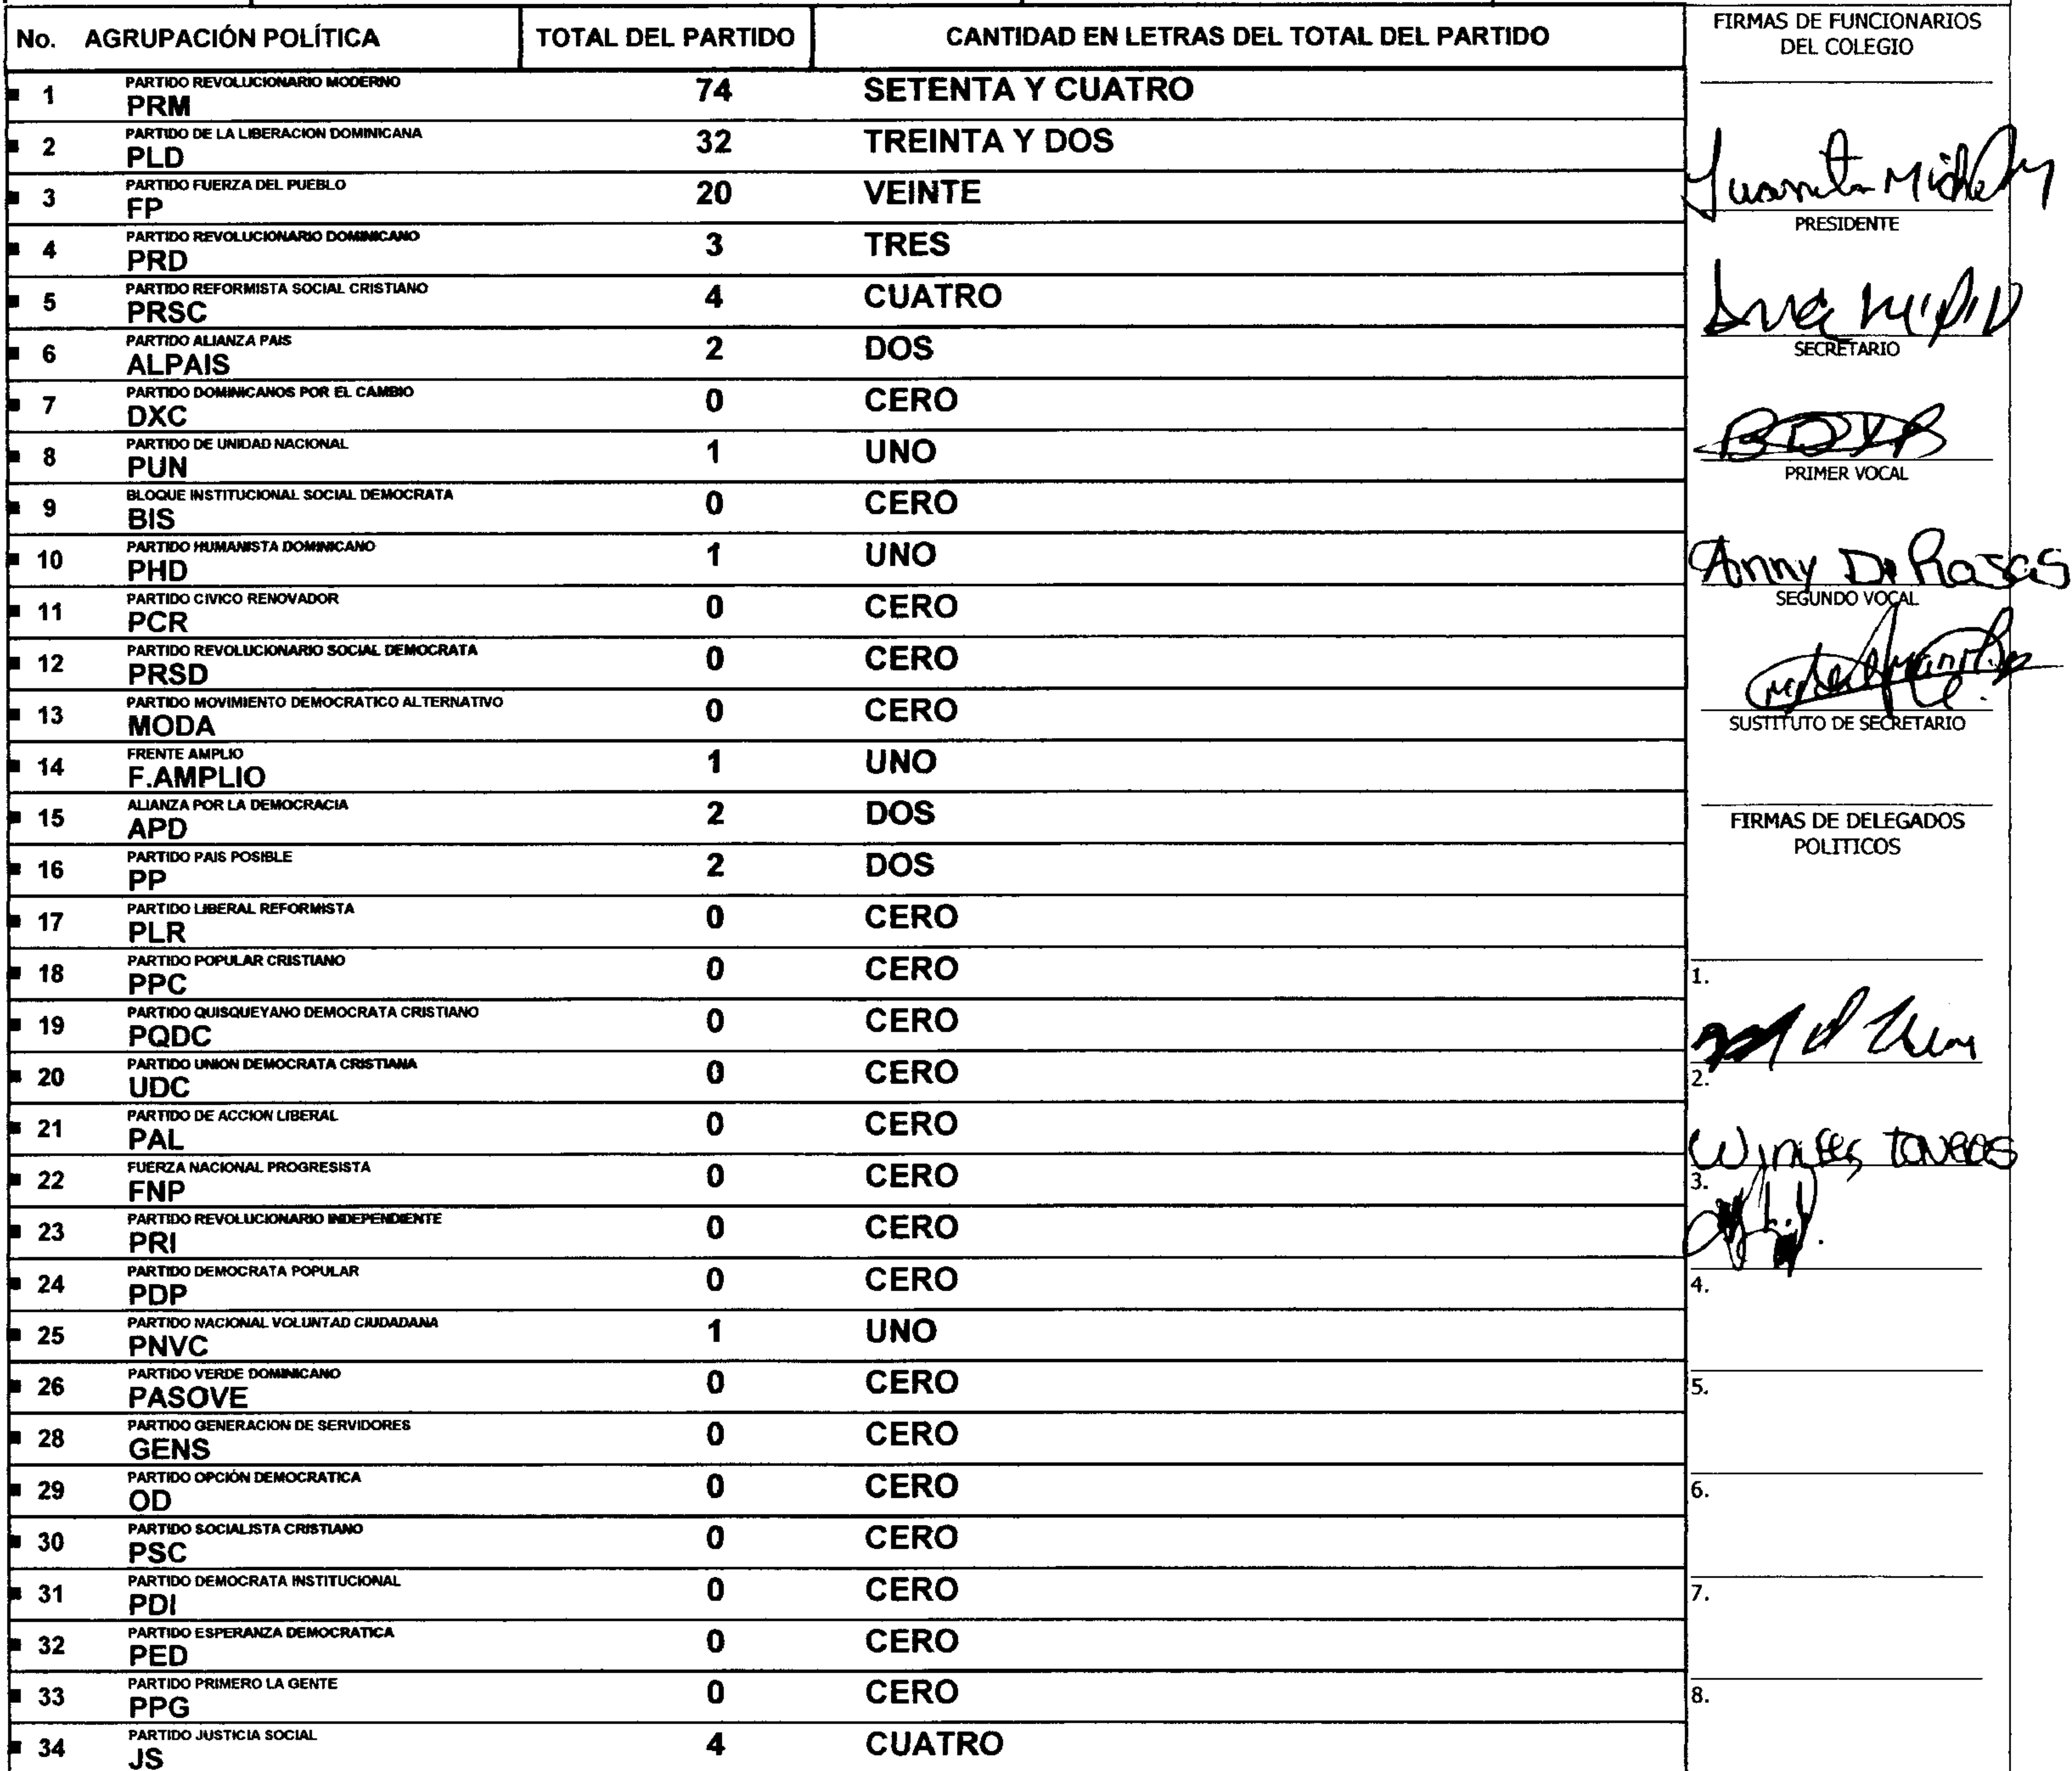 No. AGRUPACIÓN POLÍTICA TOTAL DEL PARTIDO CANTIDAD EN LETRAS DEL TOTAL DEL PARTIDO
1 PARTIDO REVOLUCIONARIO MODERNO
PRM 74 SETENTA Y CUATRO
2 PARTIDO DE LA LIBERACION DOMINICANA
PLD 32 TREINTA Y DOS
3 PARTIDO FUERZA DEL PUEBLO
FP 20 VEINTE
4 PARTIDO REVOLUCIONARIO DOMINICANO
PRD 3 TRES
5 PARTIDO REFORMISTA SOCIAL CRISTIANO
PRSC 4 CUATRO
6 PARTIDO ALIANZA PAIS
ALPAIS 2 DOS
7 PARTIDO DOMINICANOS POR EL CAMBIO
DXC 0 CERO
8 PARTIDO DE UNIDAD NACIONAL
PUN 1 UNO
9 BLOQUE INSTITUCIONAL SOCIAL DEMOCRATA
BIS 0 CERO
10 PARTIDO HUMANISTA DOMINICANO
PHD 1 UNO
11 PARTIDO CIVICO RENOVADOR
PCR 0 CERO
12 PARTIDO REVOLUCIONARIO SOCIAL DEMOCRATA
PRSD 0 CERO
13 PARTIDO MOVIMIENTO DEMOCRATICO ALTERNATIVO
MODA 0 CERO
14 FRENTE AMPLIO
F.AMPLIO 1 UNO
15 ALIANZA POR LA DEMOCRACIA
APD 2 DOS
16 PARTIDO PAIS POSIBLE
PP 2 DOS
17 PARTIDO LIBERAL REFORMISTA
PLR 0 CERO
18 PARTIDO POPULAR CRISTIANO
PPC 0 CERO
19 PARTIDO QUISQUEYANO DEMOCRATA CRISTIANO
PQDC 0 CERO
20 PARTIDO UNION DEMOCRATA CRISTIANA
UDC 0 CERO
21 PARTIDO DE ACCION LIBERAL
PAL 0 CERO
22 FUERZA NACIONAL PROGRESISTA
FNP 0 CERO
23 PARTIDO REVOLUCIONARIO INDEPENDIENTE
PRI 0 CERO
24 PARTIDO DEMOCRATA POPULAR
PDP 0 CERO
25 PARTIDO NACIONAL VOLUNTAD CIUDADANA
PNVC 1 UNO
26 PARTIDO VERDE DOMINICANO
PASOVE 0 CERO
28 PARTIDO GENERACION DE SERVIDORES
GENS 0 CERO
29 PARTIDO OPCIÓN DEMOCRATICA
OD 0 CERO
30 PARTIDO SOCIALISTA CRISTIANO
PSC 0 CERO
31 PARTIDO DEMOCRATA INSTITUCIONAL
PDI 0 CERO
32 PARTIDO ESPERANZA DEMOCRATICA
PED 0 CERO
33 PARTIDO PRIMERO LA GENTE
PPG 0 CERO
34 PARTIDO JUSTICIA SOCIAL
JS 4 CUATRO
FIRMAS DE FUNCIONARIOS
DEL COLEGIO
PRESIDENTE
SECRETARIO
PRIMER VOCAL
Anny D. Rosas
SEGUNDO VOCAL
SUSTITUTO DE SECRETARIO
FIRMAS DE DELEGADOS
POLITICOS
1.
2.
3.
4.
5.
6.
7.
8.